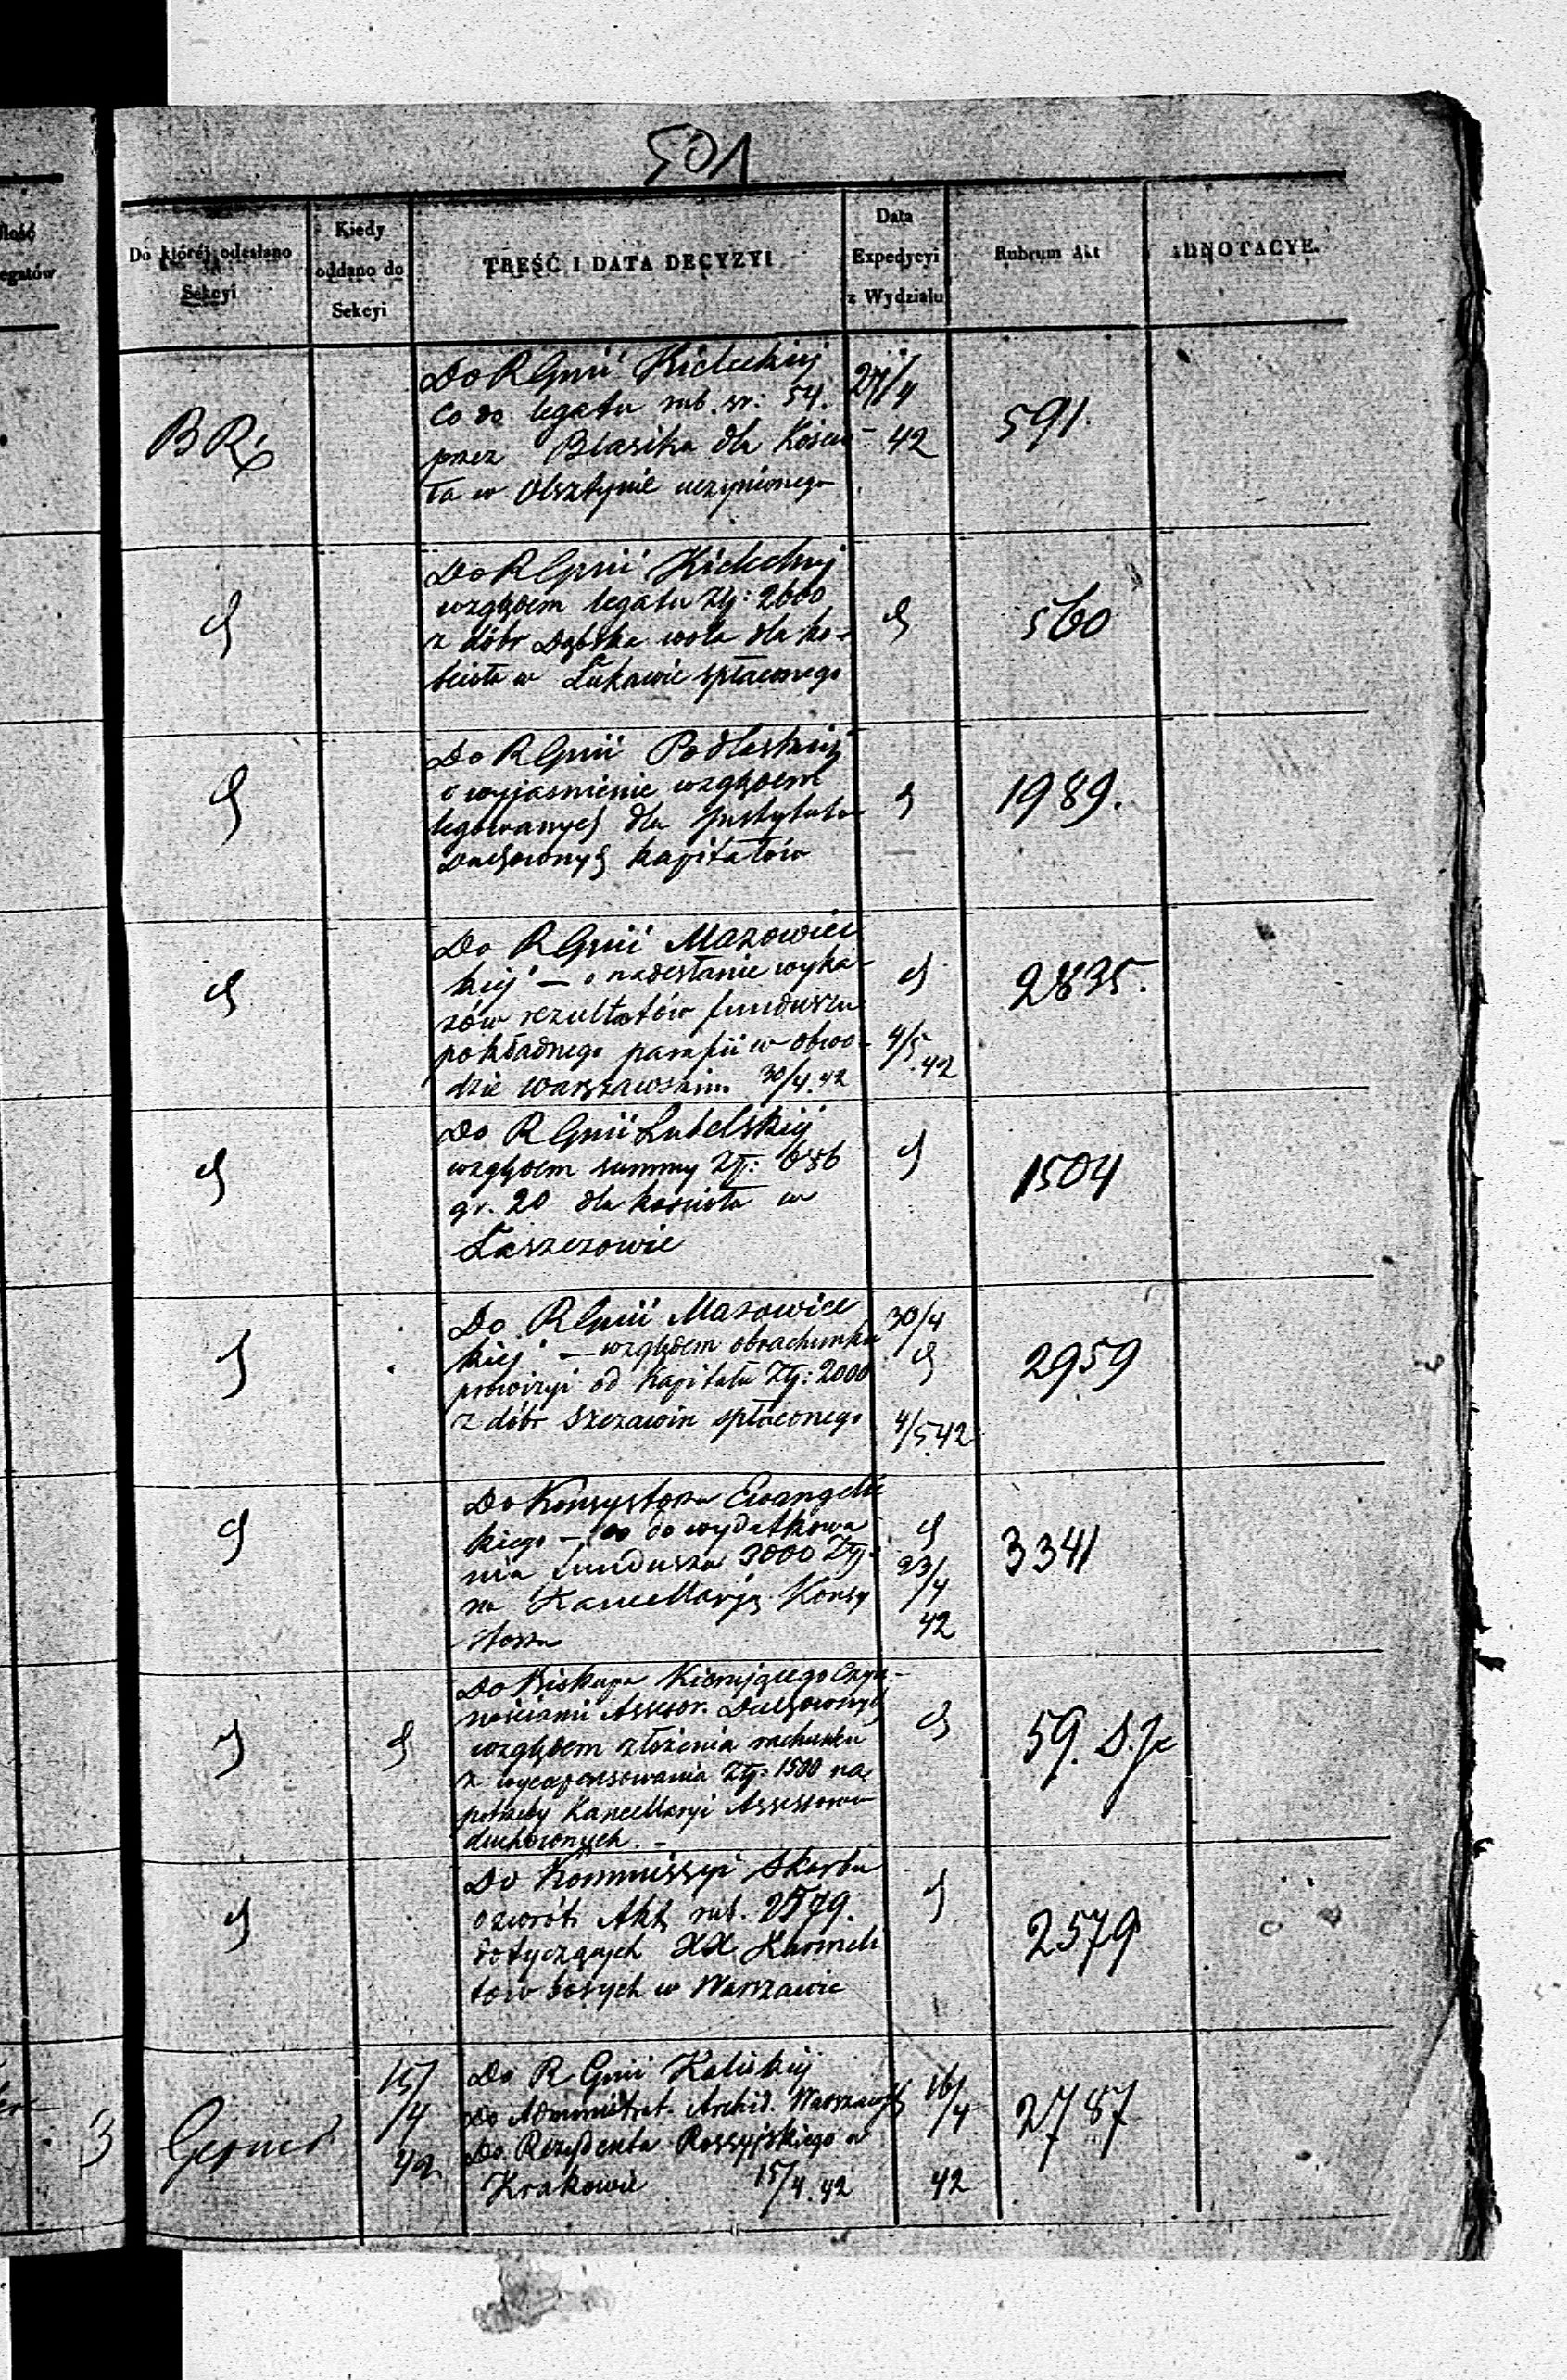 501
Ilość
egatów
Do której odesłano
Sekcyi
Kiedy
oddano do
Sekcyi
TREŚĆ I DATA DECYZYI
Data
Expedycyi
z Wydziału
Rubrum Akt
ADNOTACYE.
Do R Gnii Kieleckiej
co do legatu rub. sr: 54.
przez Blasika dla Kościo-
ła w Olsztynie uczynionego
27/4
42
591.
Do R Gnii Kieleckiej
względem legatu Złp: 2000
z dóbr Dąbska wola dla ko-
ścioła w Łukawie spłaconego
560
Do R Gnii Podlaskiej
o wyjasnienie względem
legowanych dla Instytutów
Duchownych kapitałów
1989.
Do R Gnii Mazowiec
kiej – o nadesłanie wyka-
zów rezultatów funduszu
pokładnego parafii w obwo-
dzie Warszawskim 30/4.42
4/5.42
2835.
Do R Gnii Lubelskiej
względem summy Złp: 686
gr. 20 dla kościoła w
Łaszczowie
1504
Do R Gnii Mazowiec
kiej – względem obrachunku
prowizyi od Kapitału Złp: 2000
z dóbr Szczawin spłaconego
30/4
4/5.42
2959
Do Konsystorza Ewangelic
kiego – co do wydatkowa
nia funduszu 3000 Złp.
na Kancellarję Konsy
storza
23/4
42
3341
Do Biskupa Kierującego Czyn-
nościami Assesor. Duchownych
względem złożenia rachunku
z wyexpensowania Złp: 1500 na
potrzeby Kancellaryi Assessorów
duchownych. –
59.
Do Kommissyi Skarbu
o zwrót Akt rub. 2579.
dotyczących XX Karmeli
tów bosych w Warszawie
2579
15/4
42
Do R Gnii Kaliskiej
Do Administrat. Archid. Warszawsk
Do Rezydenta Rossyjskiego w
Krakowie 15/4.42
16/4
42
2787